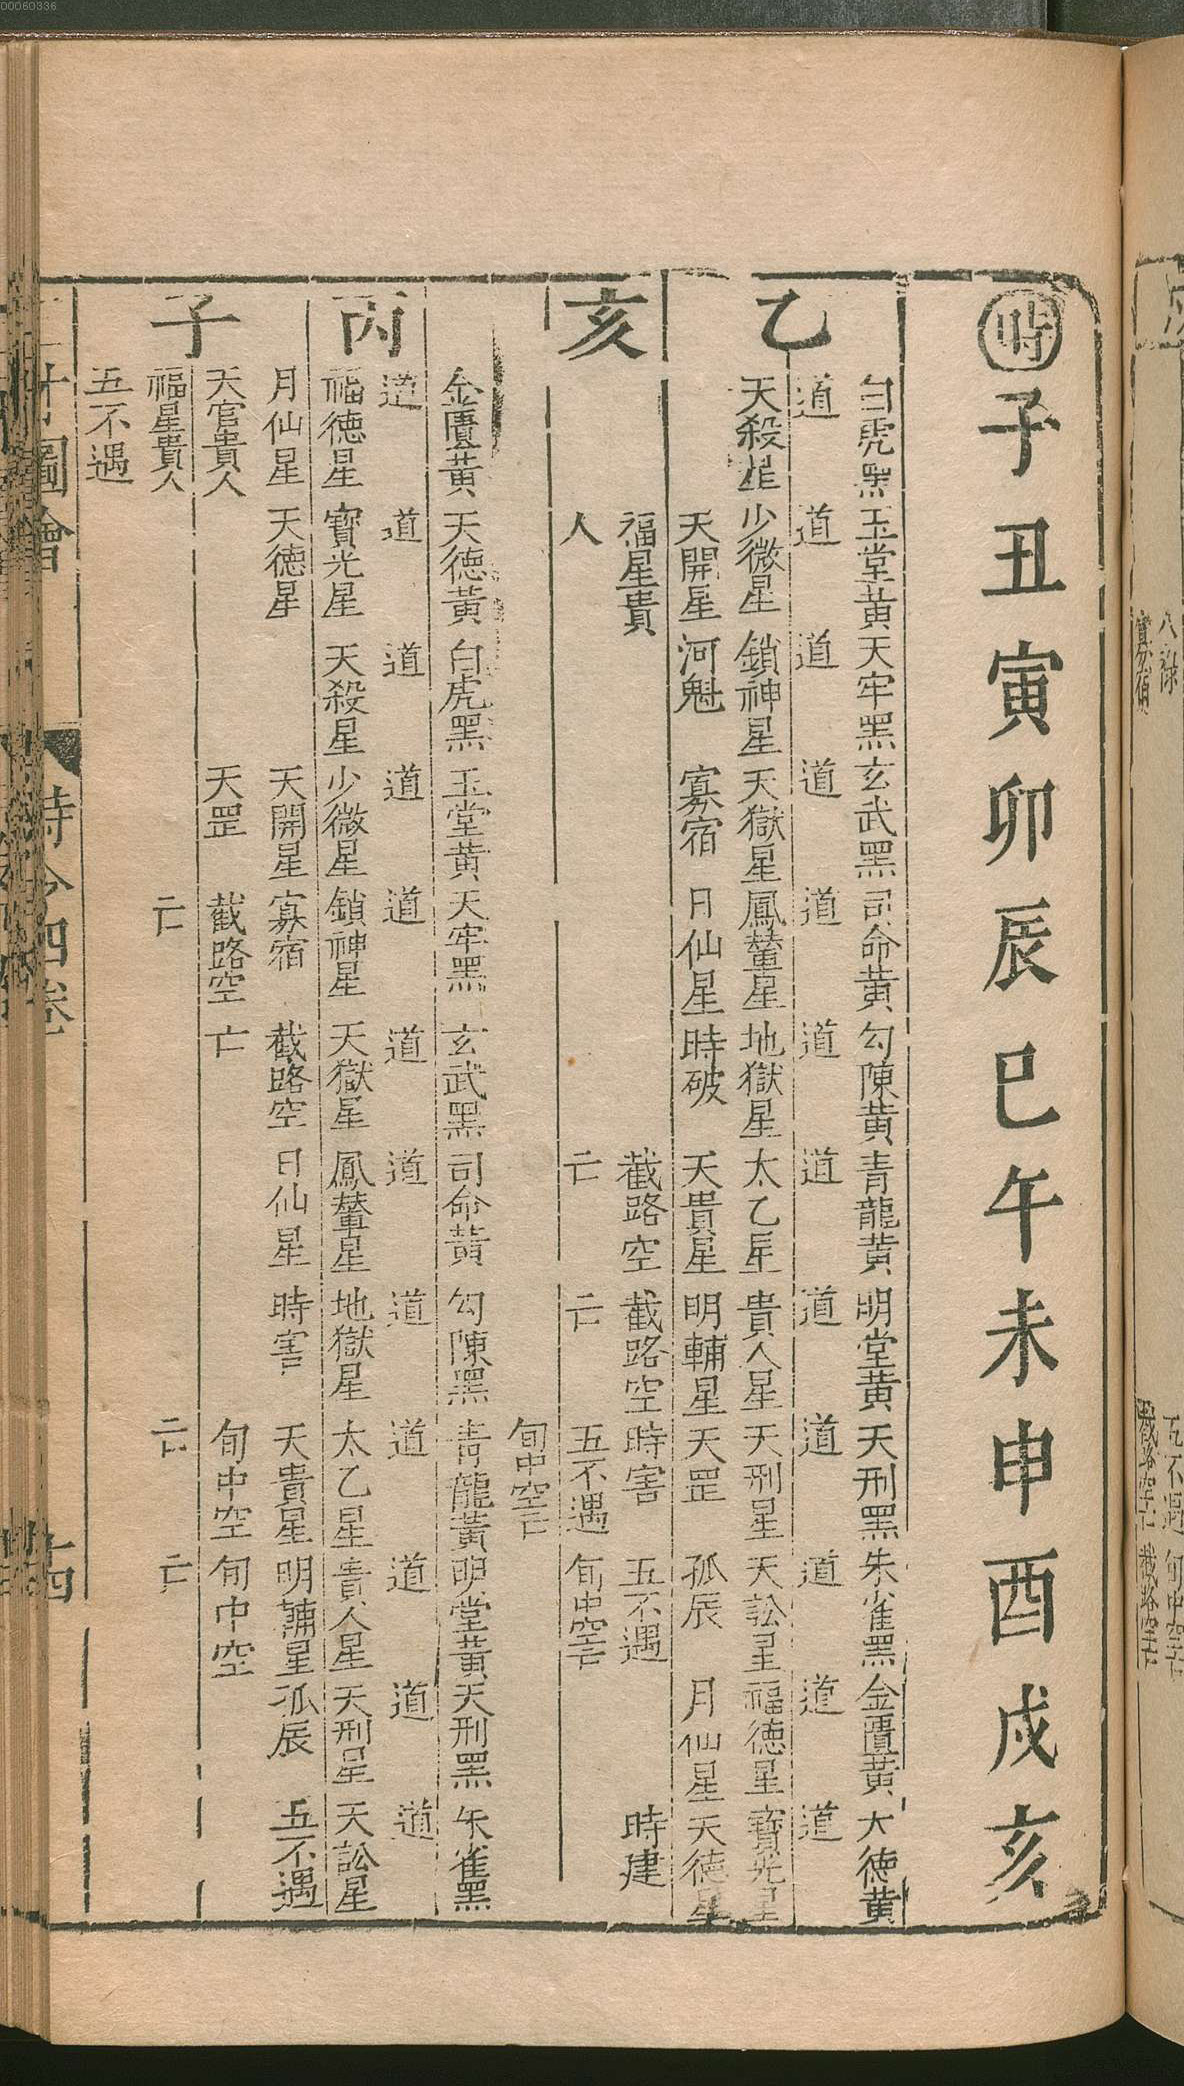 00060336
時子丑寅卯辰巳午未申酉戌亥
乙
白虎黑玉堂黄天牢黑玄武黑司命黄勾陳黄青龍黄明堂黄天刑黑朱雀黑金匱黄大德黄
道道道道道道道道道道道道
天殺星少微星鎖神星天獄星鳳輦星地獄星太乙星貴人星天刑星天訟星福德星寶光星
天開星河魁寡宿日仙星時破天貴星明輔星天罡孤辰月仙星天德星
亥
福星貴截路空截路空時害五不遇時建
人亡亡五不遇旬中空亡
旬中空亡
金匱黄天德黄白虎黑玉堂黄天牢黑玄武黑司命黄勾陳黑青龍黄明堂黄天刑黑朱雀黑
道道道道道道道道道道道道
丙
福德星寶光星天殺星少微星鎖神星天獄星鳳輦星地獄星太乙星貴人星天刑星天訟星
月仙星天德星天開星寡宿截路空日仙星時害天貴星明輔星孤辰五不遇
子
天官貴人天罡截路空亡旬中空旬中空
福星貴人亡亡亡
五不遇
圖會
時令四卷
十四